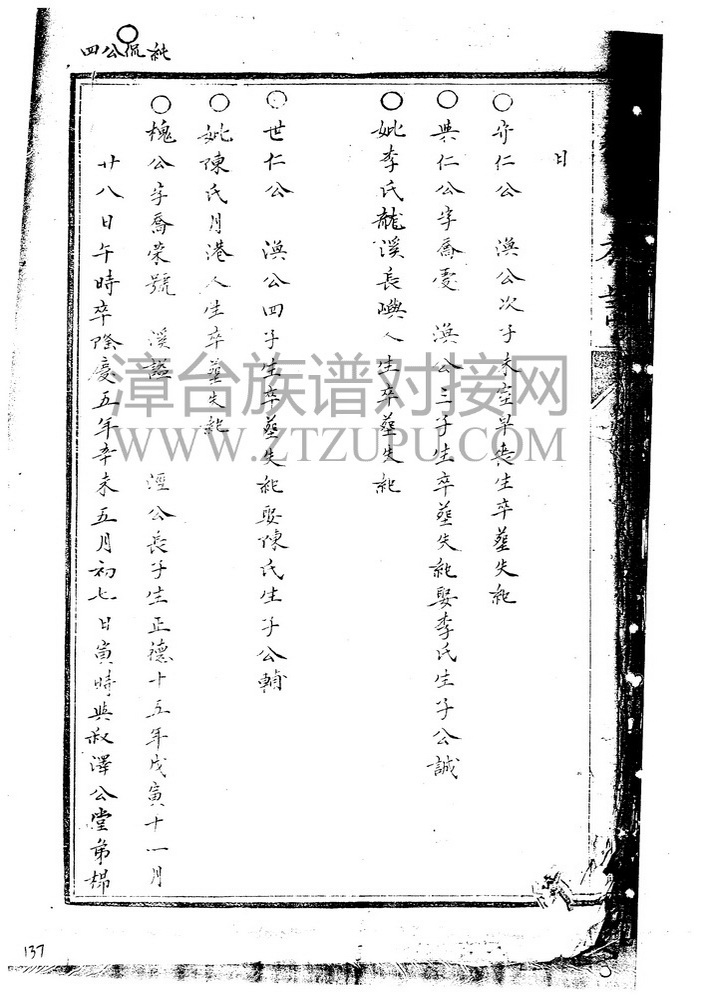 四公侃純
日
○齐仁公　渙公次子未室早喪生卒塟失紀
○興仁公字喬憂　渙公三子生卒塟失紀娶李氏生子公誠
○妣李氏龍溪長嶼人生卒塟失紀
○世仁公　渙公四子生卒塟失紀娶陳氏生子公楨
○妣陳氏月港人生卒塟失紀
○槐公字喬荣號　溪謚　　涇公長子生正德十五年戊寅十一月
廿八日午時卒隆慶五年辛未五月初七日寅時與叔澤公堂弟梆
漳台族谱对接网
WWW.ZTZUPU.COM
137